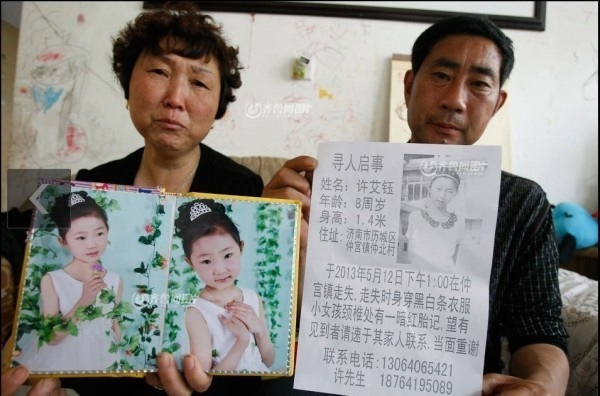 寻人启事
姓名：许艾钰
年龄：8周岁
身高：1.4米
住址：济南市历城区
仲宫镇仲北村
于2013年5月12日下午1:00在仲
宫镇走失，走失时身穿黑白条衣服
小女孩颈椎处有一暗红胎记，望有
见到者请速于其家人联系，当面重谢
联系电话：13064065421
许先生 18764195089
齐鲁网图片
齐鲁网图片
齐鲁网图片
齐鲁网图片